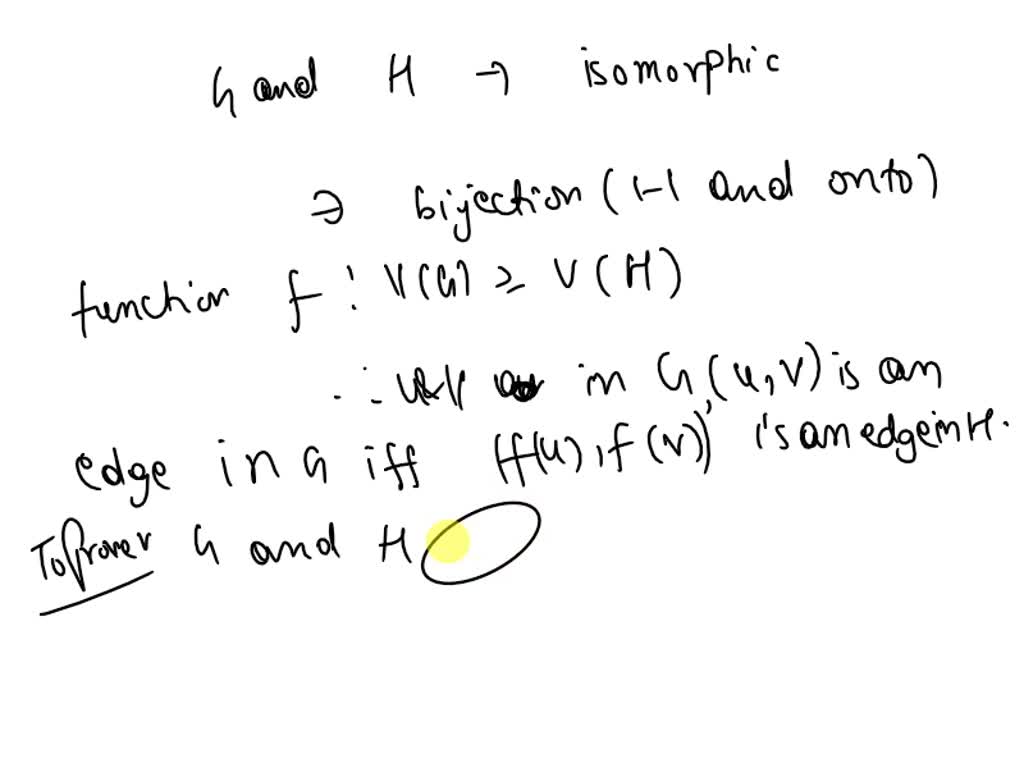 G and H → isomorphic
⇒ bijection (1-1 and onto)
function f : V(G) ≥ V(H)
in G, (u,v) is an
edge in G iff (f(u), f(v)) is an edge in H.
To prove G and H